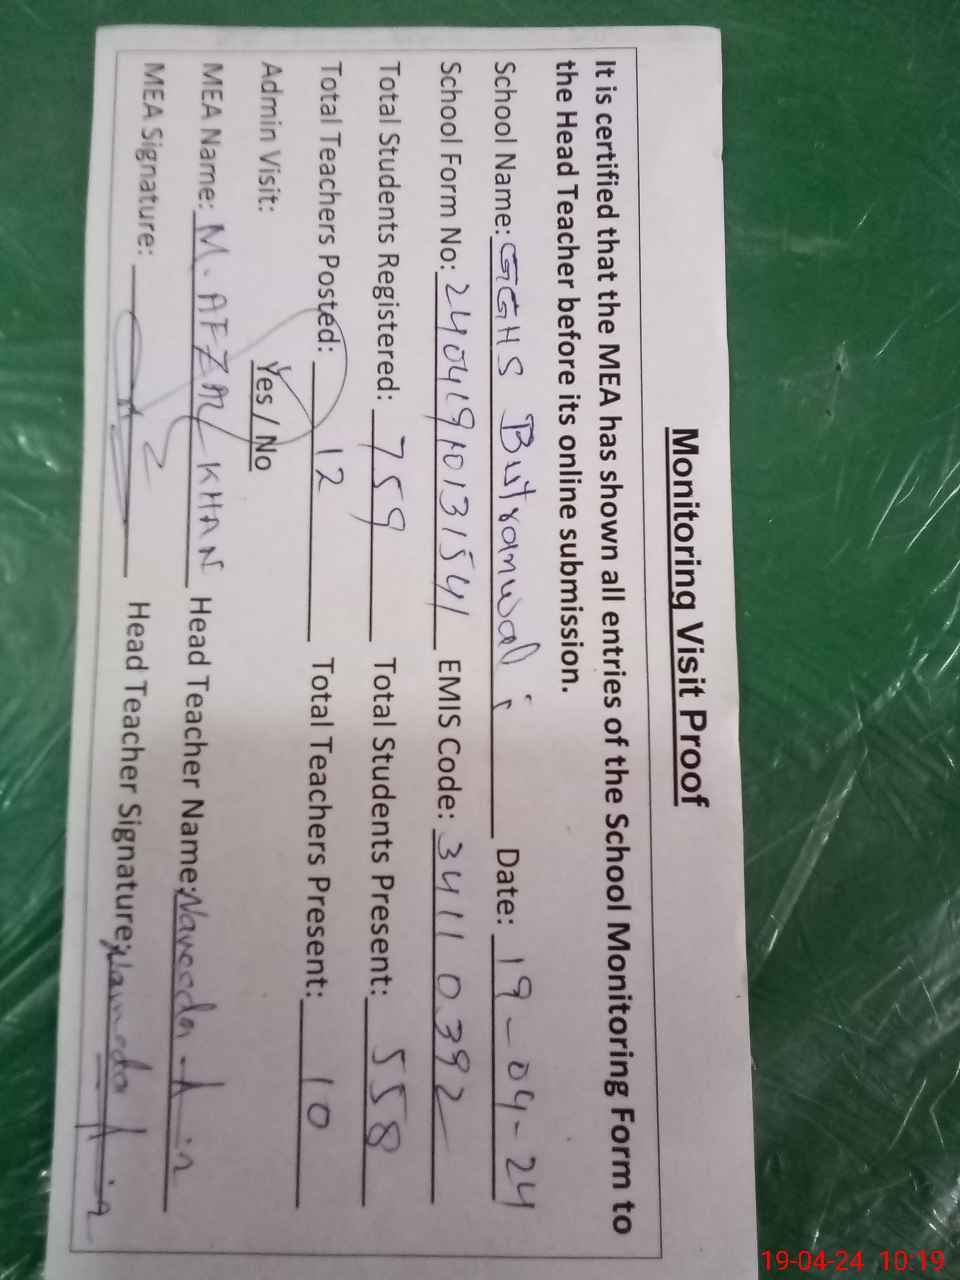 Monitoring Visit Proof
It is certified that the MEA has shown all entries of the School Monitoring Form to
the Head Teacher before its online submission.
School Name: GGHS Butranwali Date: 19-04-24
School Form No: 24041910131541 EMIS Code: 34110392
Total Students Registered: 759 Total Students Present: 558
Total Teachers Posted: 12 Total Teachers Present: 10
Admin Visit: Yes / No
MEA Name: M. AFZAL KHAN Head Teacher Name: Naveeda A
MEA Signature: Head Teacher Signature:
19-04-24 10:19